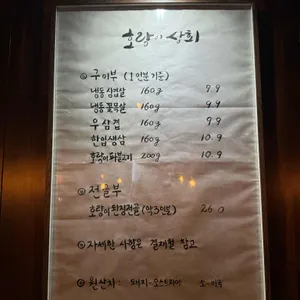 호랑이 상회
◎ 구이부 (1인분 기준)
냉동삼겹살 160g 9.9
냉동꽃목살 160g 9.9
우삼겹 160g 9.9
한입생삼 160g 10.9
호랑이 파불고기 200g 10.9
◎ 전골부
호랑이 된장전골 (약 3인분) 26.0
◎ 자세한 사항은 결재철 참고
◎ 원산지 : 돼지-오스트리아 소-미국